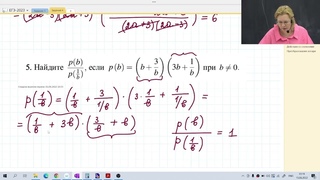 (2a+3)(2a-3) = 6
5. Найдите p(b)/p(1/b), если p(b) = (b + 3/b)(3b + 1/b) при b ≠ 0.
p(1/b) = (1/b + 3/(1/b)) · (3 · 1/b + 1/(1/b)) =
= (1/b + 3b) · (3/b + b)
p(b)/p(1/b) = 1